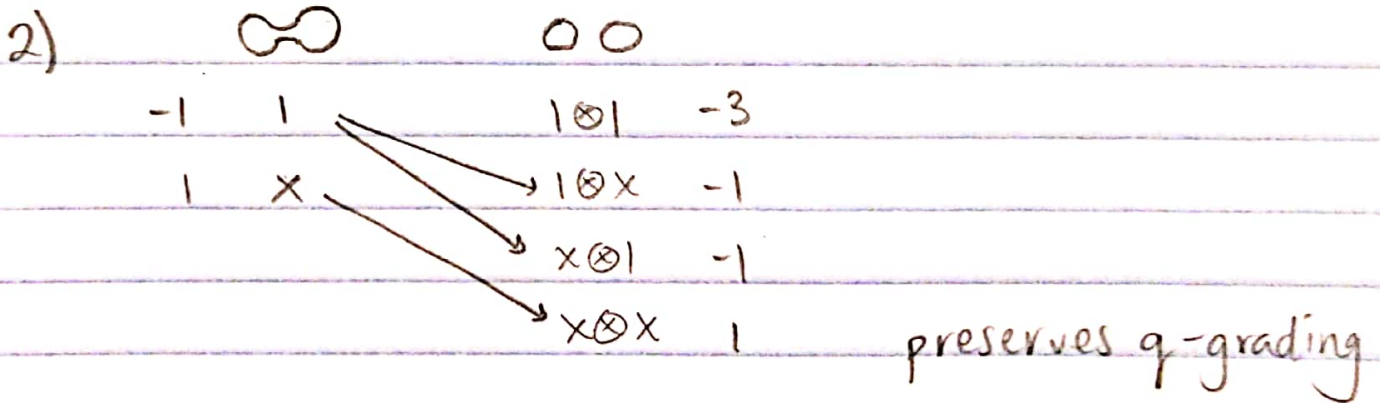 2)
-1 1 1⊗1 -3
1 x 1⊗x -1
x⊗1 -1
x⊗x 1 preserves q-grading